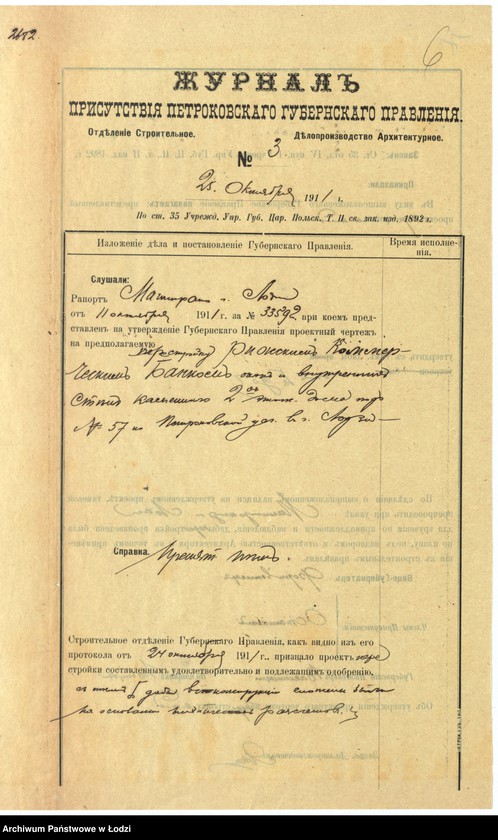 2682.
6
ЖУРНАЛЪ
ПРИСУТСТВІЯ ПЕТРОКОВСКАГО ГУБЕРНСКАГО ПРАВЛЕНІЯ.
Отдѣленіе Строительное. Дѣлопроизводство Архитектурное.
№ 3
25 Октября 1911 г.
По ст. 35 Учрежд. Упр. Губ. Цар. Польск. Т. II св. зак. изд. 1892 г.
Изложеніе дѣла и постановленіе Губернскаго Правленія.
Время исполненія.
Слушали:
Рапортъ Магистрата г. Лодзи
отъ 11 октября 1911 г. за № 33592 при коемъ пред-
ставленъ на утвержденіе Губернскаго Правленія проектный чертежъ
на предполагаемую перестройку Рижскимъ Коммер-
ческимъ Банкомъ оконъ и внутреннихъ
стѣнъ 2 этаж. дома подъ
№ 57 по Петроковской ул. в г. Лодзи
Справка.
Строительное отдѣленіе Губернскаго Правленія, какъ видно изъ его
протокола отъ 24 октября 1911 г. признало проектъ пере
стройки составленнымъ удовлетворительно и подлежащимъ одобренію,
на основаніи
Archiwum Państwowe w Łodzi